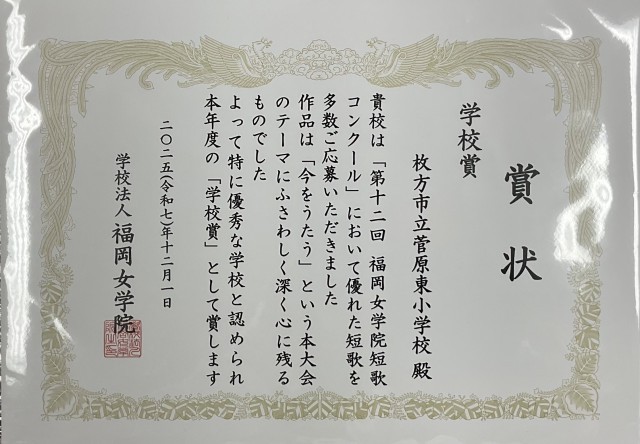 賞状
学校賞
枚方市立菅原東小学校 殿
貴校は「第十二回 福岡女学院短歌
コンクール」において優れた短歌を
多数ご応募いただきました
作品は「今をうたう」という本大会
のテーマにふさわしく深く心に残る
ものでした
よって特に優秀な学校と認められ
本年度の「学校賞」として賞します
二〇二五(令和七)年十二月一日
学校法人 福岡女学院